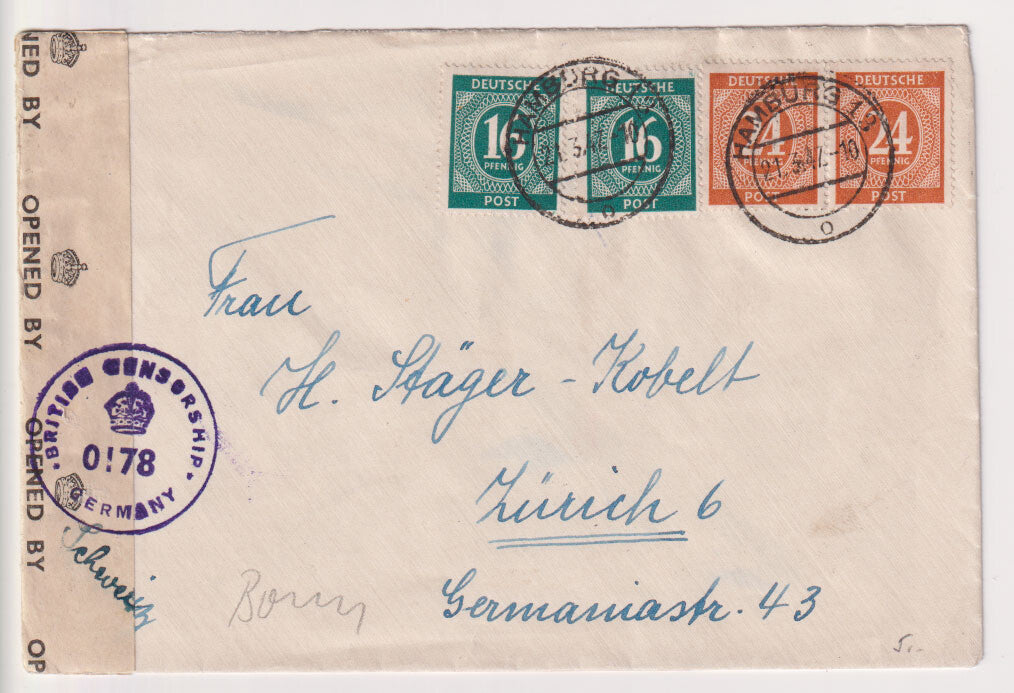 DEUTSCHE
16
PFENNIG
POST
DEUTSCHE
16
PFENNIG
POST
DEUTSCHE
24
PFENNIG
POST
DEUTSCHE
24
PFENNIG
POST
HAMBURG 13
o
HAMBURG 13
21.3.47.-16
o
NED BY
OPENED BY
OPENED BY
OP
BRITISH CENSORSHIP
0178
GERMANY
Frau
H. Stäger-Kobelt
Zürich 6
Germaniastr. 43
Schweiz
5.-